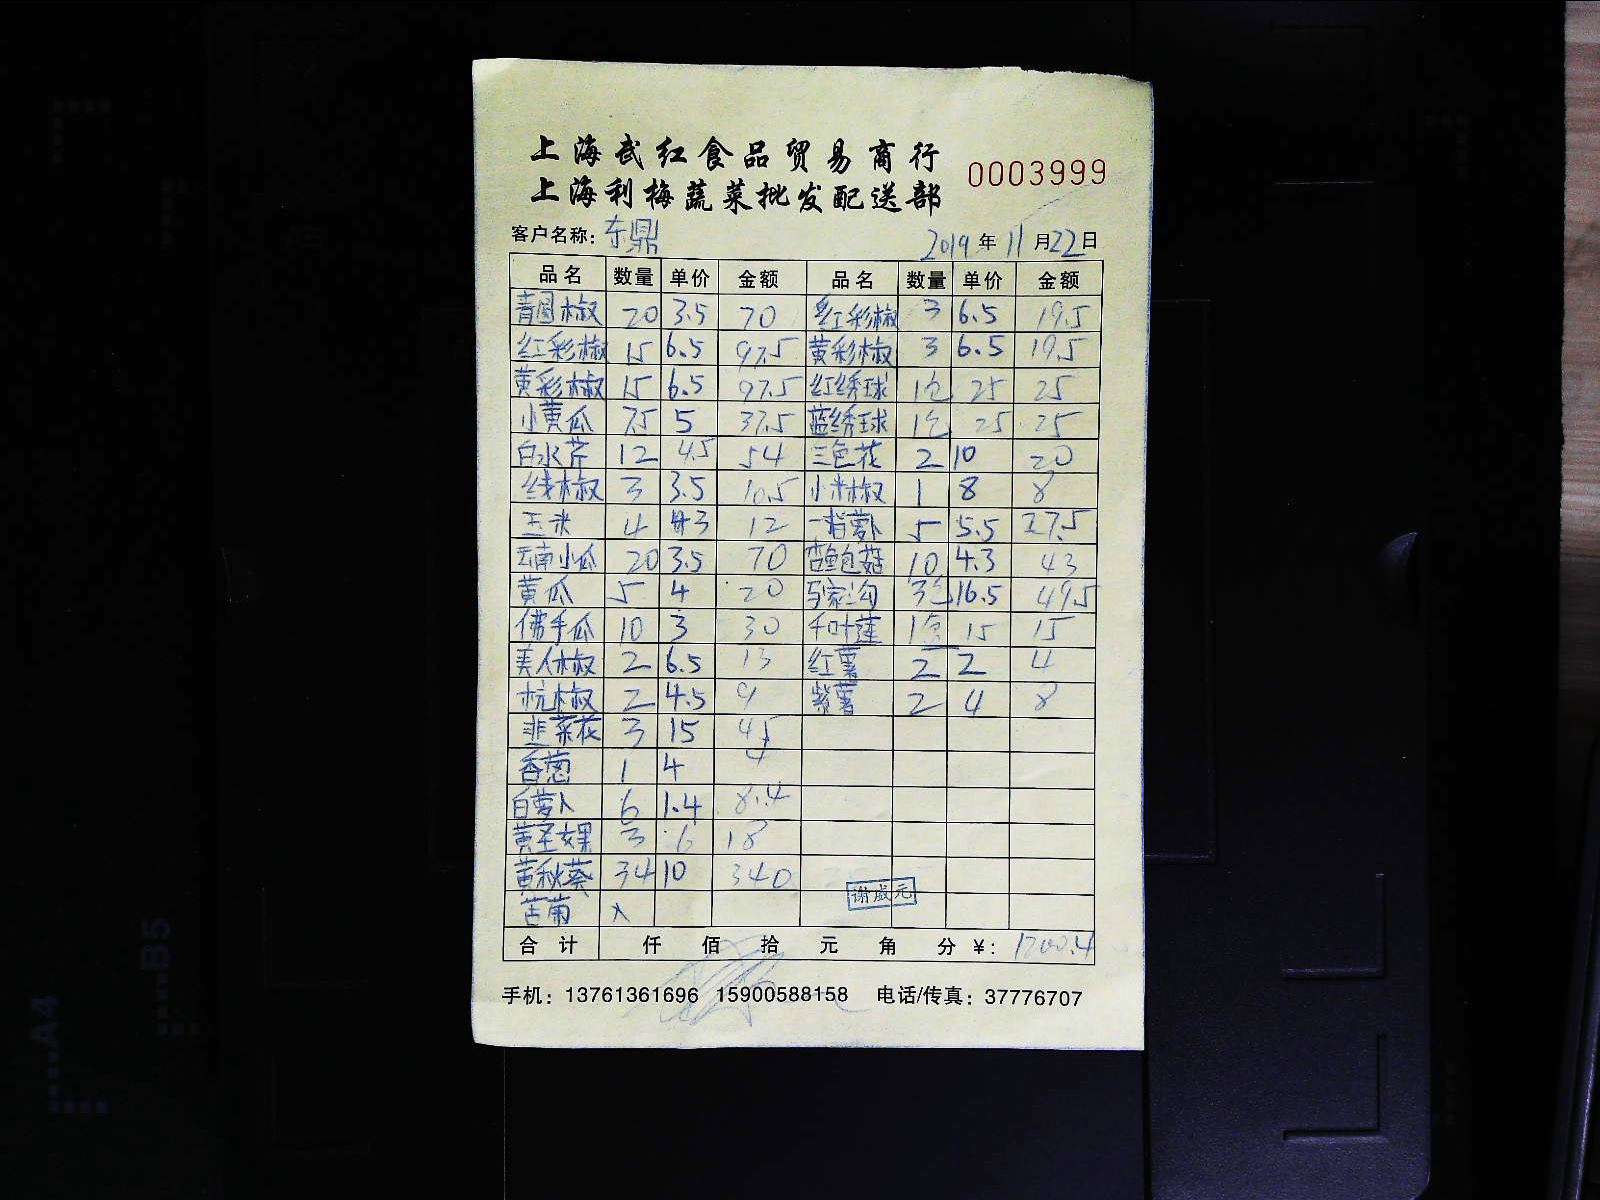 上海武红食品贸易商行
上海利梅蔬菜批发配送部
0003999
客户名称：东鼎 2019年11月22日
品名 数量 单价 金额 品名 数量 单价 金额
青圆椒 20 3.5 70 红彩椒 3 6.5 19.5
红彩椒 15 6.5 97.5 黄彩椒 3 6.5 19.5
黄彩椒 15 6.5 97.5 红绣球 1仓 25 25
小黄瓜 7.5 5 37.5 蓝绣球 1仓 25 25
白水芹 12 4.5 54 三色花 2 10 20
线椒 3 3.5 10.5 小米椒 1 8 8
玉米 4 3 12 一指萝卜 5 5.5 27.5
云南小瓜 20 3.5 70 杏鱼包菇 10 4.3 43
黄瓜 5 4 20 马家沟 3仓 16.5 49.5
佛手瓜 10 3 30 千叶莲 1仓 15 15
美人椒 2 6.5 13 红薯 2 2 4
杭椒 2 4.5 9 紫薯 2 4 8
韭菜花 3 15 45
香葱 1 4 4
白萝卜 6 1.4 8.4
黄圣女果 3 6 18
黄秋葵 34 10 340
苦菊 x
谢成元
合计 仟 佰 拾 元 角 分 ¥：1200.4
手机：13761361696 15900588158 电话/传真：37776707
B5
A4